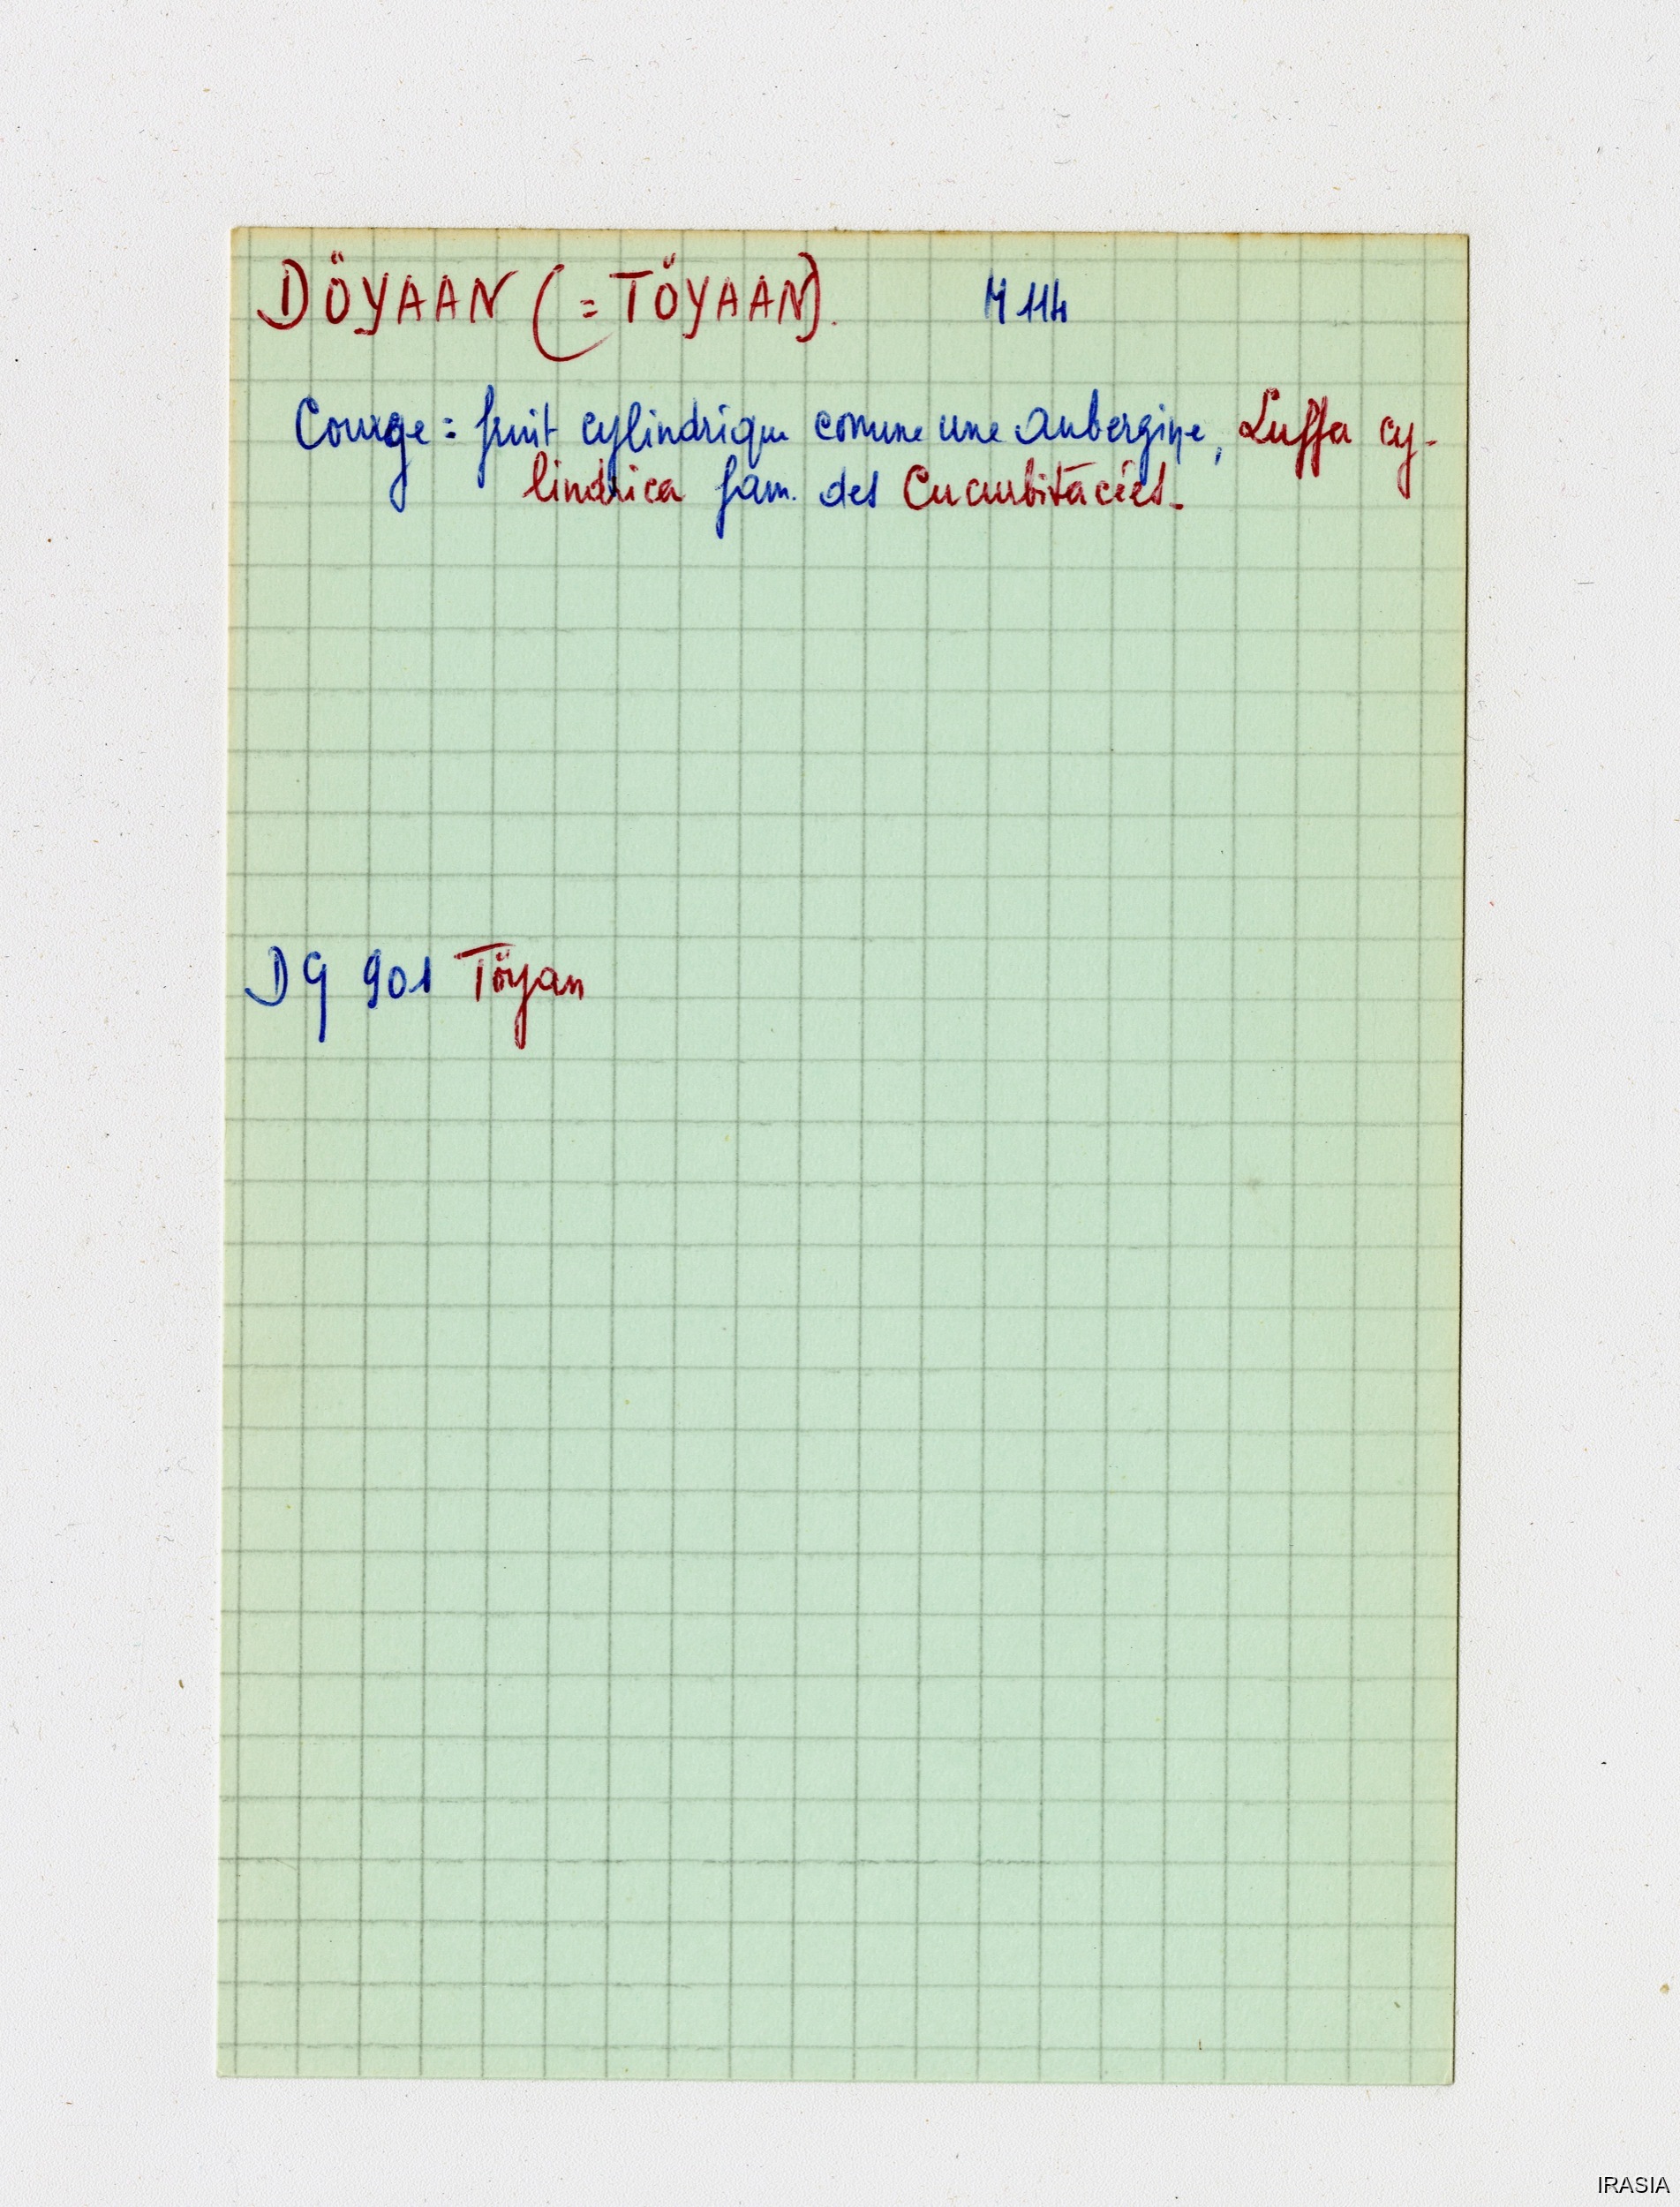 DÖYAAN (= TÖYAAN). M 114
Courge = fruit cylindrique comme une aubergine, Luffa cy-
lindrica fam. des Cucurbitacées.
DG 901 Töyan
IRASIA